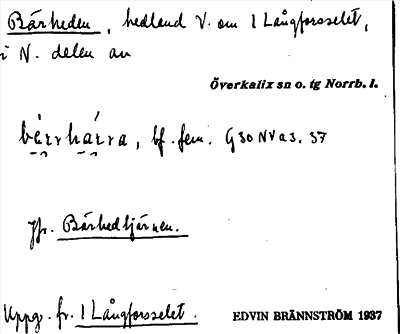 Bärheden, hedland V. om 1 Långforsselet,
i N. delen av
Överkalix sn o. tg Norrb. l.
bérrhárra, bf. fem. G 30 NV a3. 37
Jfr. Bärhedtjärnen.
Uppg. fr. 1 Långforsselet.
EDVIN BRÄNNSTRÖM 1937